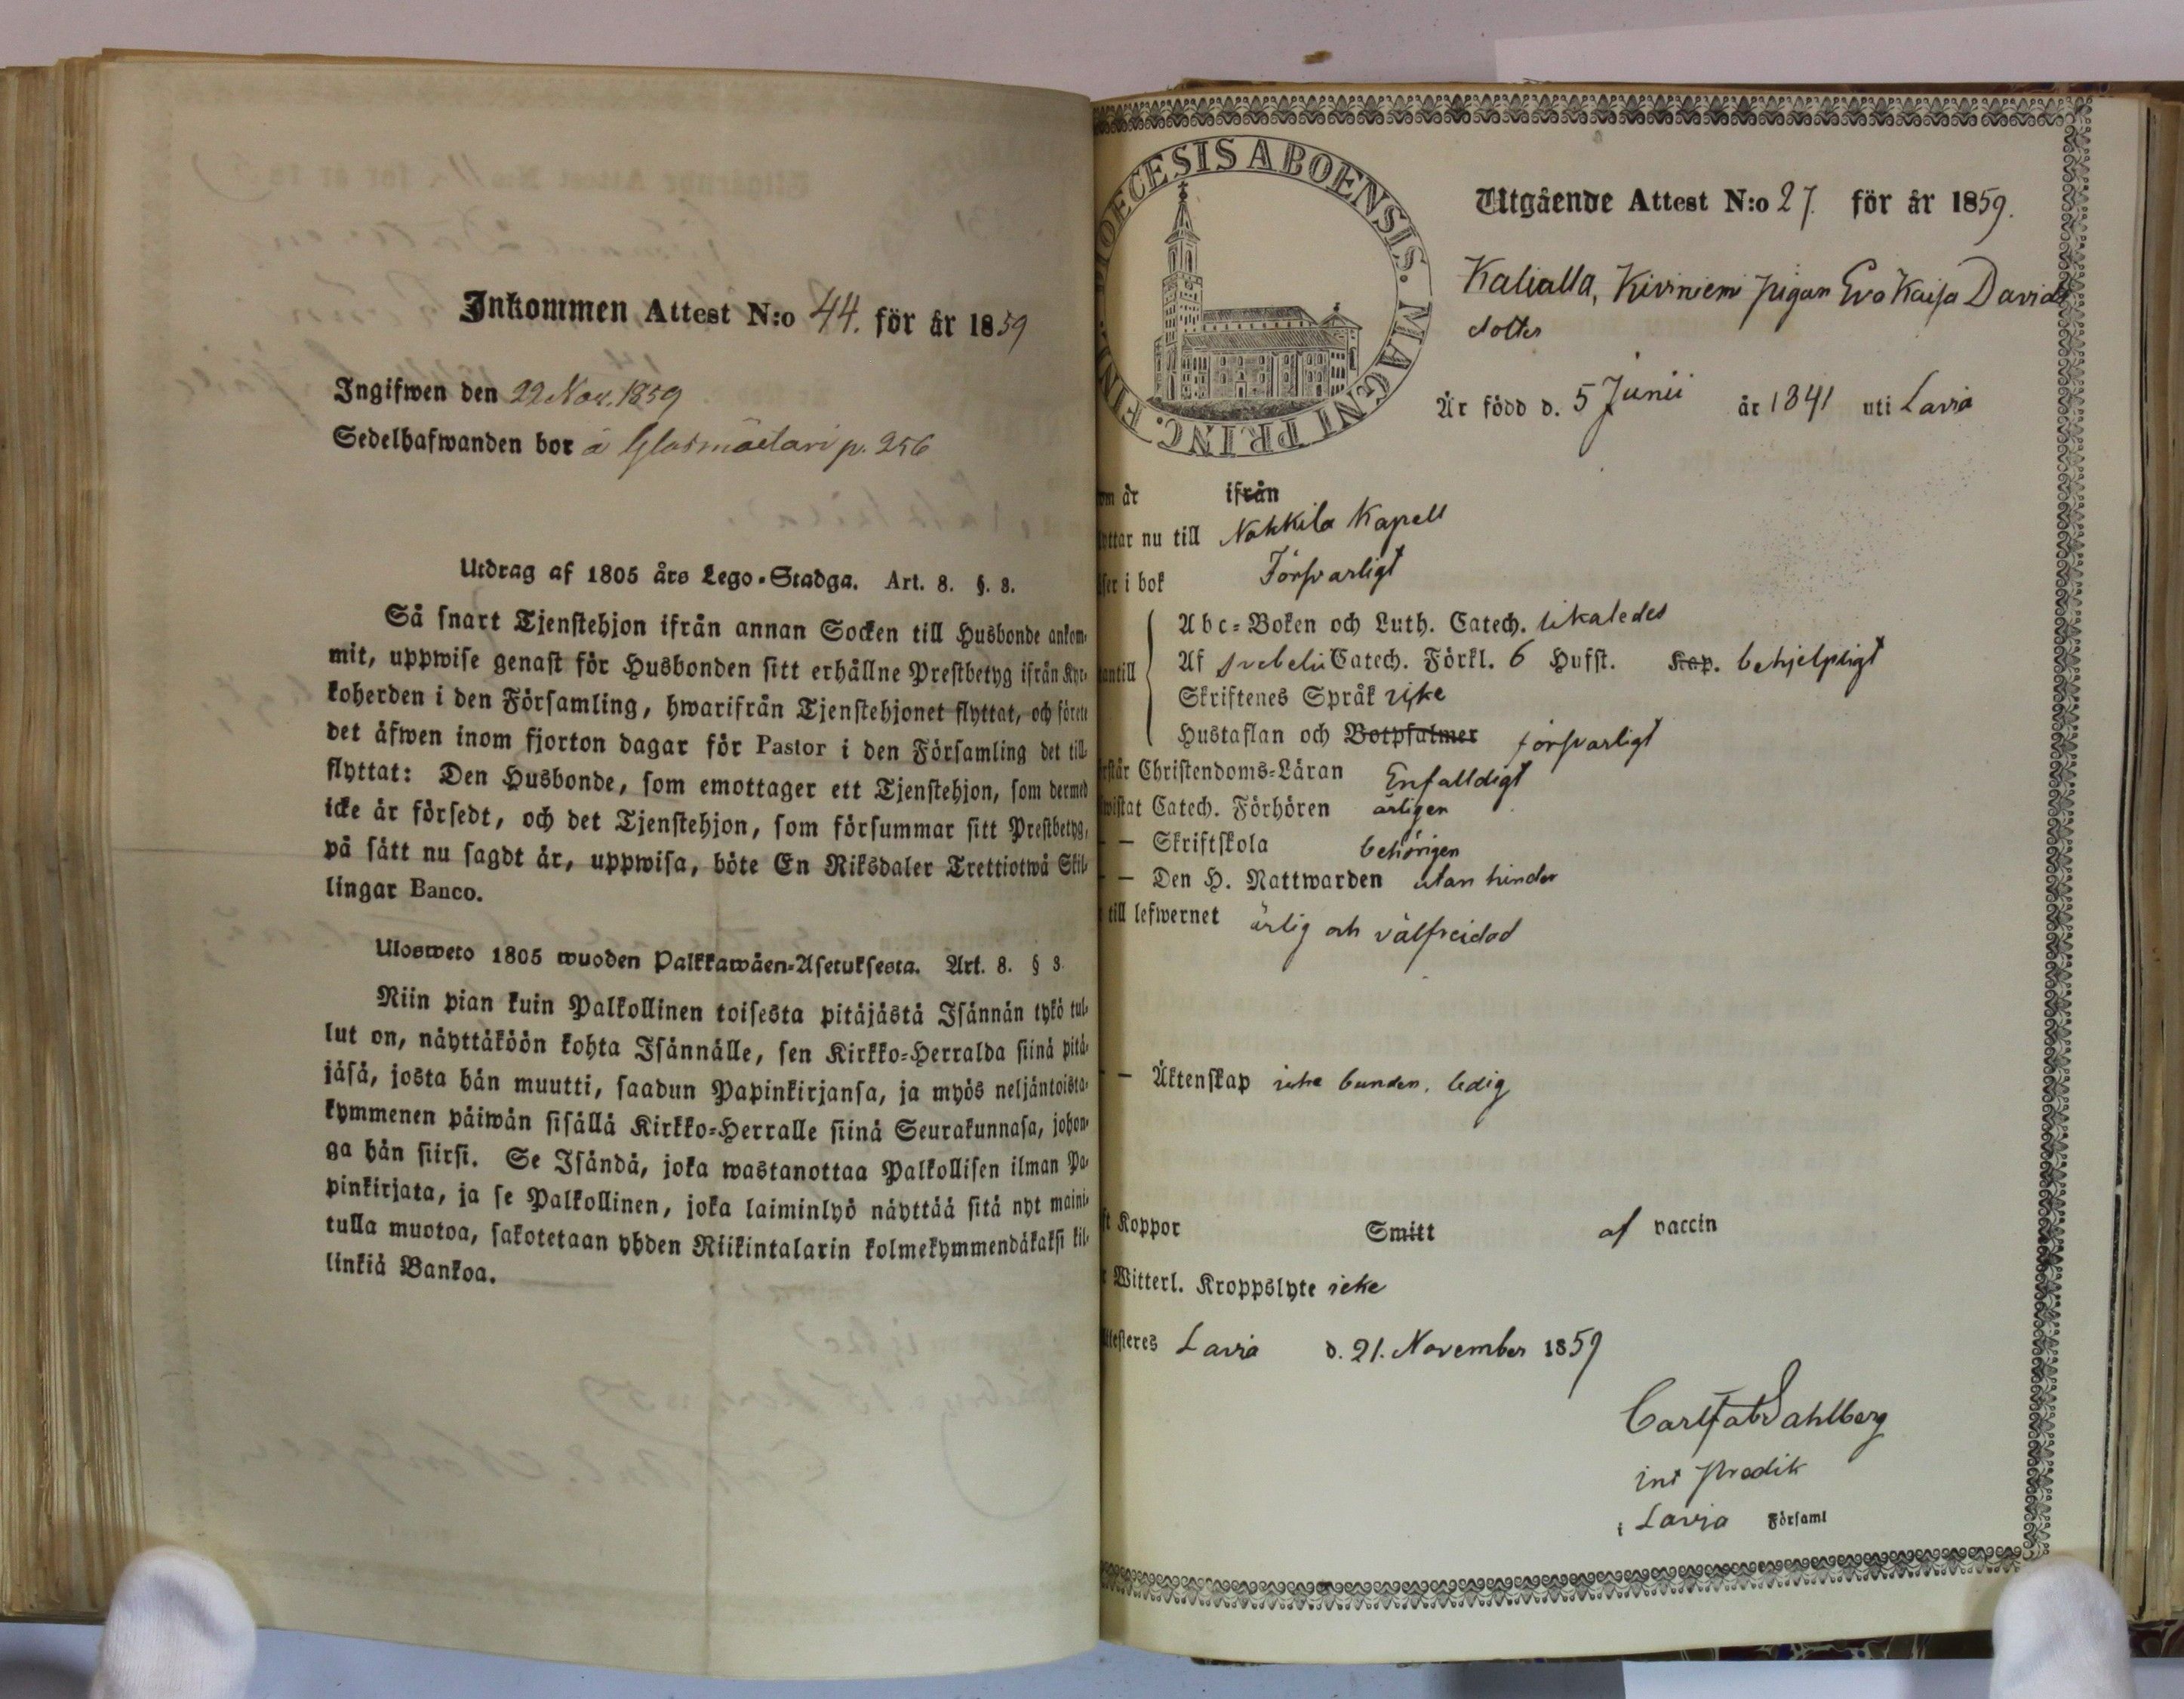 Inkommen Attest N:o 44. för år 1859
Ingifwen den 22 Nov. 1859
Sedelhafwanden bor å Glasmästari p. 256
Utdrag af 1805 års Lego-Stadga. Art. 8. §. 3.
Så snart Tjenstehjon ifrån annan Socken till Husbonde ankom-
mit, uppwise genast för Husbonden sitt erhållne Prestbetyg ifrån Kyr-
koherden i den Församling, hwarifrån Tjenstehjonet flyttat, och förete
det äfwen inom fjorton dagar för Pastor i den Församling det till-
flyttat: Den Husbonde, som emottager ett Tjenstehjon, som dermed
icke är försedt, och det Tjenstehjon, som försummar sitt Prestbetyg,
på sätt nu sagdt är, uppwisa, böte En Riksdaler Trettiotwå Skil-
lingar Banco.
Ulosweto 1805 wuoden Palkkawäen-Asetuksesta. Art. 8. § 3.
Niin pian kuin Palkollinen toisesta pitäjästä Isännän tykö tul-
lut on, näyttäköön kohta Isännälle, sen Kirkko-Herralda siinä pitä-
jäsä, josta hän muutti, saadun Papinkirjansa, ja myös neljäntoista-
kymmenen päiwän sisällä Kirkko-Herralle siinä Seurakunnasa, johon-
ga hän siirsi. Se Isändä, joka wastanottaa Palkollisen ilman Pa-
pinkirjata, ja se Palkollinen, joka laiminlyö näyttää sitä nyt maini-
tulla muotoa, sakotetaan yhden Riikintalarin kolmekymmendäkaksi kil-
linkiä Bankoa.
DIOECESIS ABOENSIS. MAGNI PRINC. FINL.
Utgående Attest N:o 27. för år 1859.
Kalialla, Kiviniemi pigan Eva Kaisa Davids
dotter
Är född d. 5 Junii år 1841 uti Lavia
om år ifrån
yttar nu till Nakkila Kapell
ser i bok Försvarligt
Abc-Boken och Luth. Catech. likaledes
Af Svebelii Catech. Förkl. 6 Hufst. Kap. behjelpligt
antill
Skriftenes Språk icke
Hustaflan och Botpsalmer försvarligt
rstår Christendoms-Läran Enfalldigt
wistat Catech. Förhören årligen
— Skriftskola behörigen
— Den H. Nattwarden utan hinder
till lefwernet ärlig och välfreidad
— Äktenskap icke bunden, ledig
ft Koppor Smitt af vaccin
Witterl. Kroppslyte icke
ttesteres Lavia d. 21. November 1859
Carl Fab Sahlberg
int Predik
i Lavia Församl